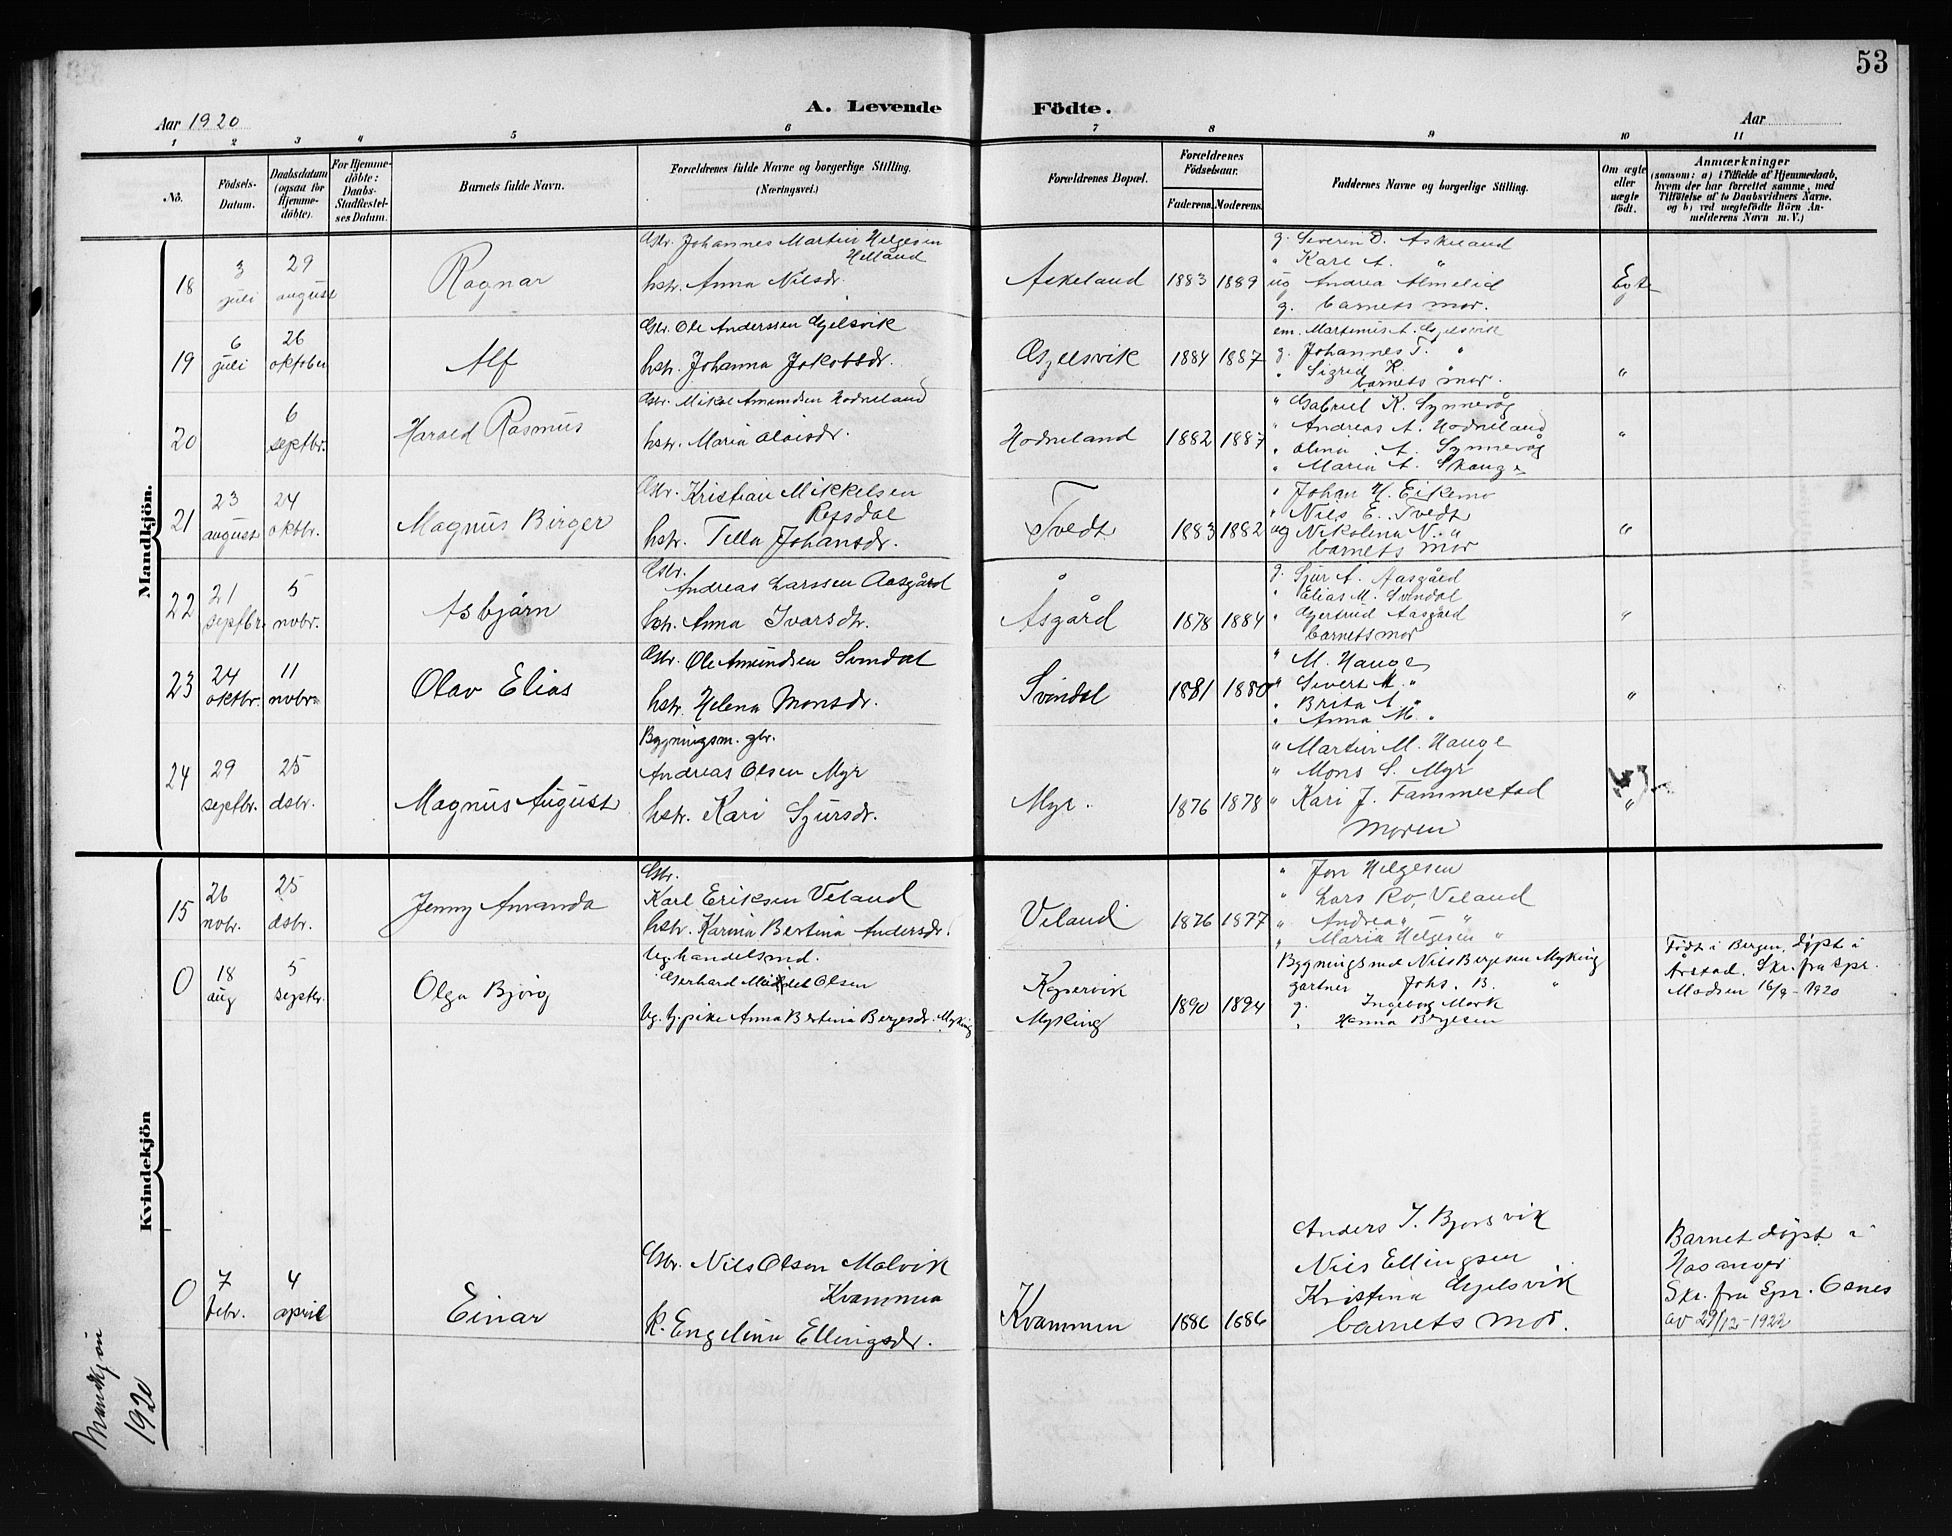 53
A. Levende Födte.
Aar 1920
Aar
1 2 3 4 5 6 7 8 9 10 11
No.
Födsels-Datum.
Daabsdatum (ogsaa for Hjemme-döbte).
For Hjemme-döbte: Daabs-Stadfæstel-ses Datum.
Barnets fulde Navn.
Forældrenes fulde Navne og borgerlige Stilling. (Næringsvei.)
Forældrenes Bopæl.
Forældrenes Födselsaar.
Faderens. Moderens.
Faddernes Navne og borgerlige Stilling.
Om ægte eller uægte födt.
Anmærkninger
(saasom: a) i Tilfælde af Hjemmedaab,
hvem der har forrettet samme, med
Tilföielse af to Daabsvidners Navne,
og b) ved uægtefödte Börn An-
melderens Navn m. V.)
Mandkjön.
18 3 juli 29 august Ragnar
Gbr. Johannes Martin Helgesen Helland
hstr. Anna Nilsdr.
Askeland 1883 1889
g. Severin D. Askeland
" Kari A. "
ug Andrea Almelid
g. barnets mor.
Egte
19 6 juli 26 oktober Alf
Gbr. Ole Anderssen Gjelsvik
hstr. Johanna Jakobsdr.
Gjelsvik 1884 1887
em. Martinus A. Gjelsvik
g. Johannes T. "
" Sigrid K. "
barnets mor.
"
20 6 septbr. Harald Rasmus
Gbr. Mikal Amundsen Hodneland
hstr. Maria Olaisdr.
Hodneland 1882 1887
" Gabriel K. Synnevåg
" Andreas A. Hodneland
" Olina A. Synnevåg
" Maria A. Skauge
"
21 23 august 24 oktbr. Magnus Birger
Gbr. Kristian Mikkelsen Refsdal
hstr. Tella Johansdr.
Tvedt 1883 1882
" Johan H. Eikemo
" Nils E. Tvedt
ug Nikolina N. "
barnets mor
"
22 21 septbr. 5 novbr. Asbjørn
Gbr. Andreas Larssen Aasgård
hstr. Anna Ivarsdtr.
Åsgård 1878 1884
g. Sjur A. Aasgård
" Elias M. Svindal
" Gjertrud Aasgård
barnets mor
"
23 24 oktbr. 11 novbr. Olav Elias
Gbr. Ole Amundsen Svindal
hstr. Helena Monsdr.
Svindal 1881 1880
" M. Hauge
" Sivert M. "
" Brita A. "
" Anna M. "
"
24 29 septbr. 25 dsbr. Magnus August
Bygningsm. gbr.
Andreas Olsen Myr
hstr. Kari Sjursdr.
Myr. 1876 1878
" Martin M. Hauge
" Mons S. Myr
" Kari J. Fammestad
Moren
"
Kvindekjön
15 26 novbr. 25 dsbr. Jenny Amanda
Gbr.
Karl Eriksen Veland
hstr. Karina Bertina Andersdr.
Veland 1876 1877
" Jon Helgesen
" Lars Veland
" Andrea " "
" Maria Helgesen "
0 18 aug 5 septbr. Olga Bjørg
Ug handelsmd.
Gerhard Olsen
Ug. tj. pike Anna Bertina Bergesdr. Myking
Myking 1890 1894
Bygningsmd Nils Bergesen Myking
gartner Johs. B. "
g. Ingeborg Mork
" Hanna Bergesen
Født i Bergen, døpt i
Årstad. Skr. fra spr.
Madsen 16/9-1920
0 7 febr. 4 april Einar
Gbr. Nils Olsen Molvik
Kvammen
k. Engelina Ellingsdr.
Kvammen 1886 1886
Anders I. Bjorsvik
Nils Ellingsen
Kristina Gjelsvik
barnets mor.
Barnet døpt i
Hosanger
Skr. fra Spr. Osnes
av 29/12-1922
Mandkjøn
1920